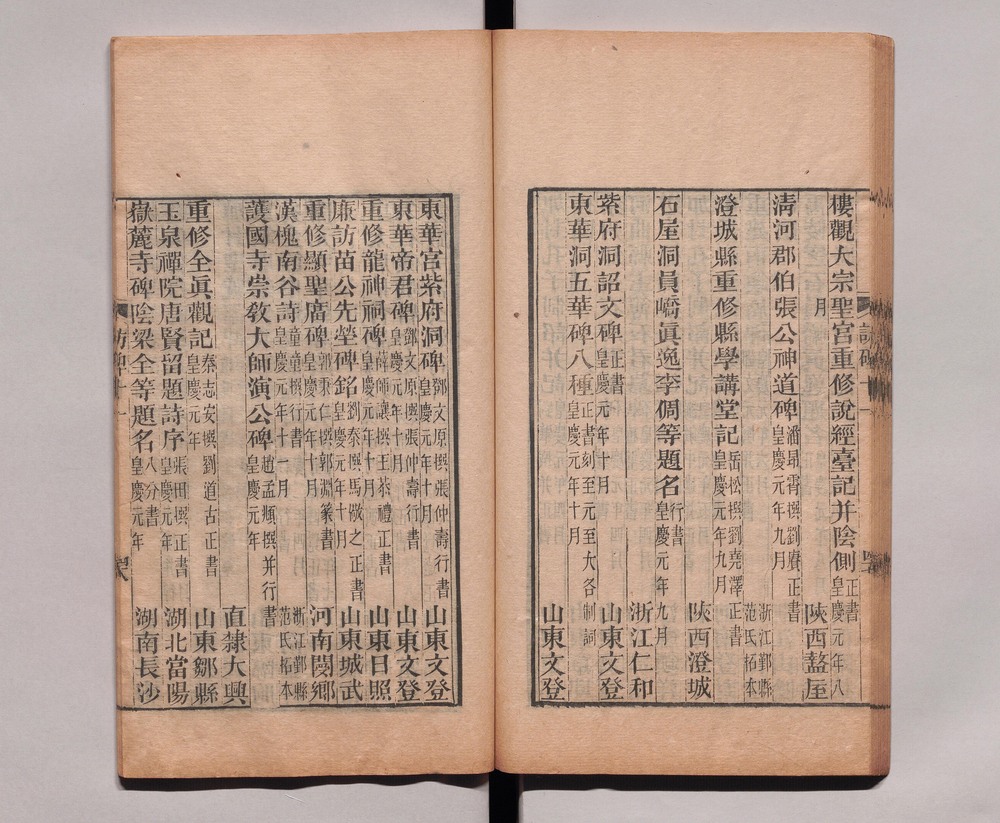 樓觀大宗聖宮重修說經臺記并陰側正書皇慶元年八
月 陝西盩厔
清河郡伯張公神道碑潘昻霄撰劉賡正書皇慶元年九月 浙江鄞縣范氏拓本
澄城縣重修縣學講堂記岳松撰劉堯澤正書皇慶元年九月 陝西澄城
石屋洞員嶠眞逸李倜等題名行書皇慶元年九月
浙江仁和
紫府洞詔文碑正書皇慶元年十月 山東文登
東華洞五華碑八種正書刻至元至大各制詞皇慶元年十月 山東文登
東華宮紫府洞碑鄧文原撰張仲壽行書皇慶元年十月 山東文登
東華帝君碑鄧文原撰張仲壽行書皇慶元年十月 山東文登
重修龍神祠碑薛師讓撰王茶禮正書皇慶元年十月 山東日照
廉訪苗公先塋碑銘劉泰撰馬敬之正書皇慶元年十月 山東城武
重修顯聖廟碑郭秉仁撰郭淵篆書皇慶元年十月 河南閿鄉
漢槐南谷詩童童撰行書皇慶元年十一月 浙江鄞縣范氏拓本
護國寺崇敎大師演公碑趙孟頫撰并行書皇慶元年
直隸大興
重修全眞觀記秦志安撰劉道古正書皇慶元年 山東鄒縣
玉泉禪院唐賢留題詩序張田撰正書皇慶元年 湖北當陽
嶽麓寺碑陰梁全等題名八分書皇慶元年 湖南長沙